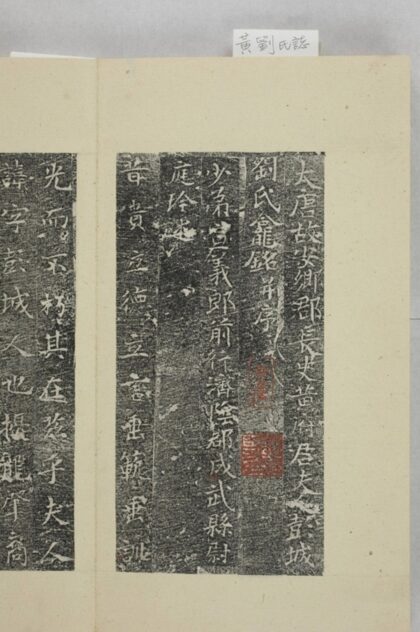 黃劉氏誌
大唐故安鄉郡長史黃府君夫人彭城
劉氏龕銘并序
少弟宣義郎前行濟陰郡成武縣尉
庭玲述
昔貴立德立言垂範垂訓
光而不朽其在茲乎夫人
諱字彭城人也擾龍乎商